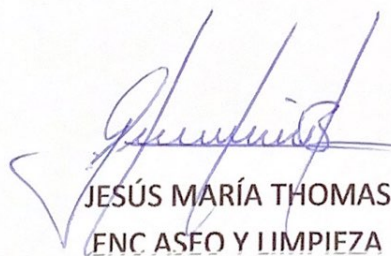 JESÚS MARÍA THOMAS
ENC ASEO Y LIMPIEZA